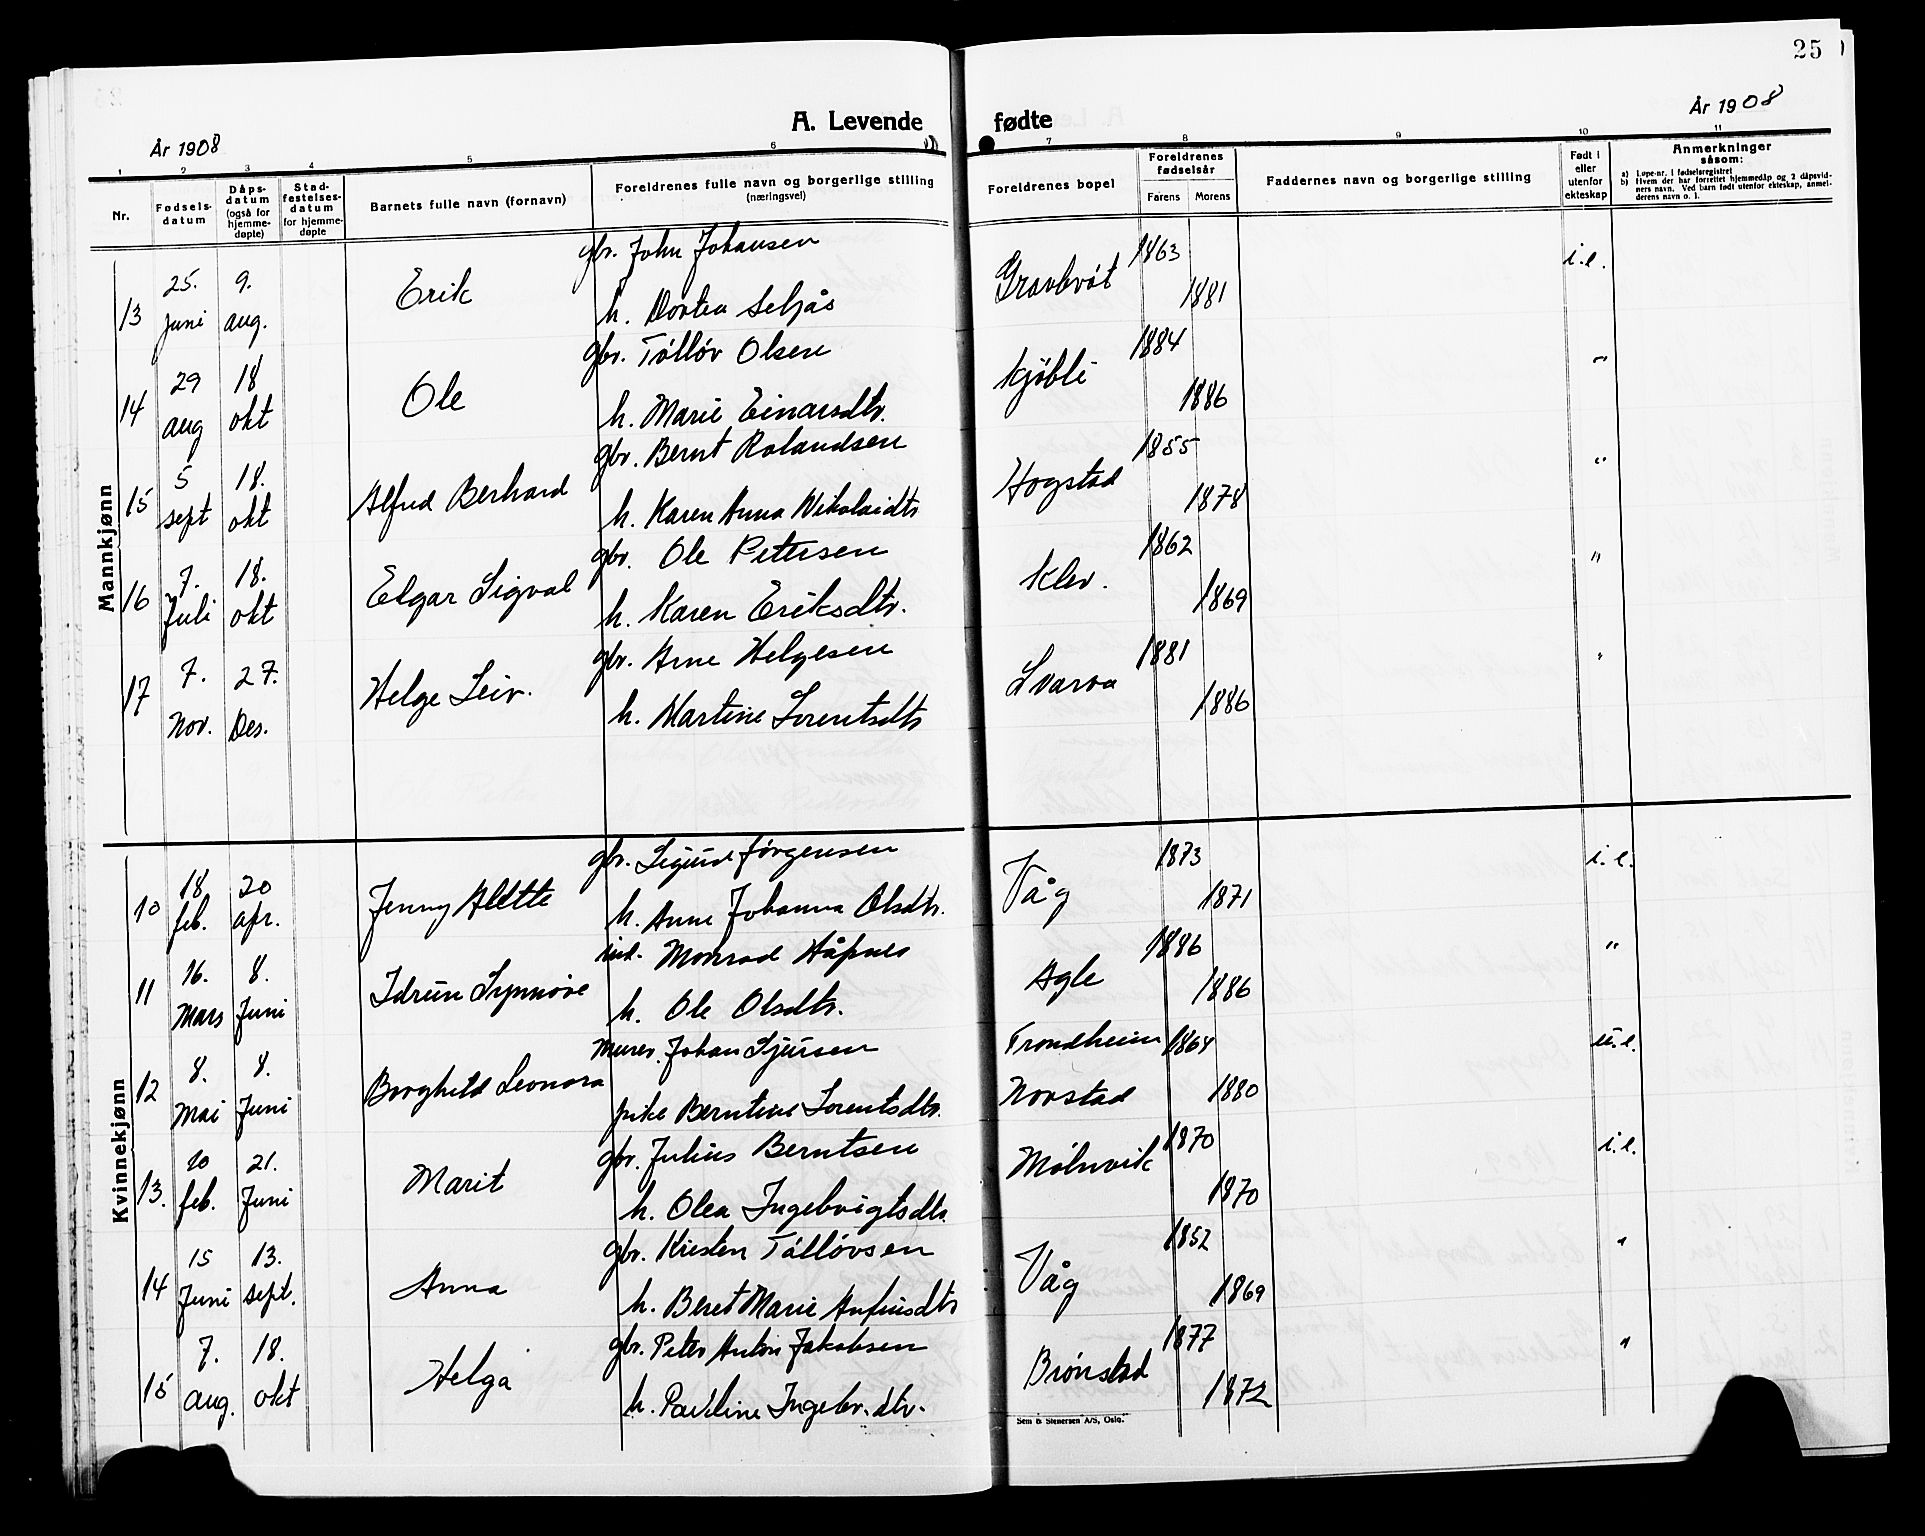 25
A. Levende fødte
År 1908
År 1908
1 2 3 4 5 6 7 8 9 10 11
Nr.
Fødsels-
datum
Dåps-
datum
(også for
hjemme-
døpte)
Stad-
festelses-
datum
for hjemme-
døpte
Barnets fulle navn (fornavn)
Foreldrenes fulle navn og borgerlige stilling
(næringsvei)
Foreldrenes bopel
Foreldrenes
fødselsår
Farens Morens
Faddernes navn og borgerlige stilling
Født i
eller
utenfor
ekteskap
Anmerkninger
såsom:
a) Løpe-nr. i fødselsregistret
b) Hvem der har forrettet hjemmedåp og 2 dåpsvid-
ners navn. Ved barn født utenfor ekteskap, anmel-
derens navn o. l.
Mannkjønn
13 25. juni 9. aug. Erik gbr. John Johansen 1863 i.e.
h. Dortea Seljås 1881
14 29 aug 18 okt Ole gbr. Tølløv Olsen Kjøbli 1884 "
h. Marie Einarsdtr. 1886
15 5 sept 18. okt Alfred Berhard gbr. Bernt Rolandsen Hogstad 1855 "
h. Karen Anna Nikolaidtr 1878
16 7. Juli 18. okt Elgar Sigval gbr. Ole Petersen Klev. 1862 "
h. Karen Eriksdtr. 1869
17 7. Nov. 27. Des. Helge Leiv. gbr. Arne Helgesen Svarva 1881 "
h. Martine Lorentsdtr 1886
Kvinnekjønn
10 18. feb. 20 apr. Jenny Alette gbr. Sigurd Jørgensen Våg 1873 i.e.
h. Anne Johanna Olsdtr. 1871
11 16. Mars 8. Juni Idrun Synnøve ind. Monrad Håpnes Agle 1886 "
h. Ole Olsdtr. 1886
12 8. Mai 8. Juni Borghild Leonora murer. Johan Sjursen Trondheim 1864 u.e.
pike Berntine Lorentsdtr. Norstad 1880
13. 20 feb. 21. Juni Marit gbr. Julius Berntsen Mølnvik 1870 i.e.
h. Olea Ingebrigtsdtr. 1870
14 15 Juni 13. sept. Anna gbr. Kristen Tølløvsen Våg 1852 "
h. Beret Marie Anfinsdtr 1869
15 7. aug. 18. okt Helga gbr. Peter Anton Jakobsen Brønstad 1877 "
h. Pauline Ingebr.dtr. 1872
Sem & Stenersen A/S, Oslo.